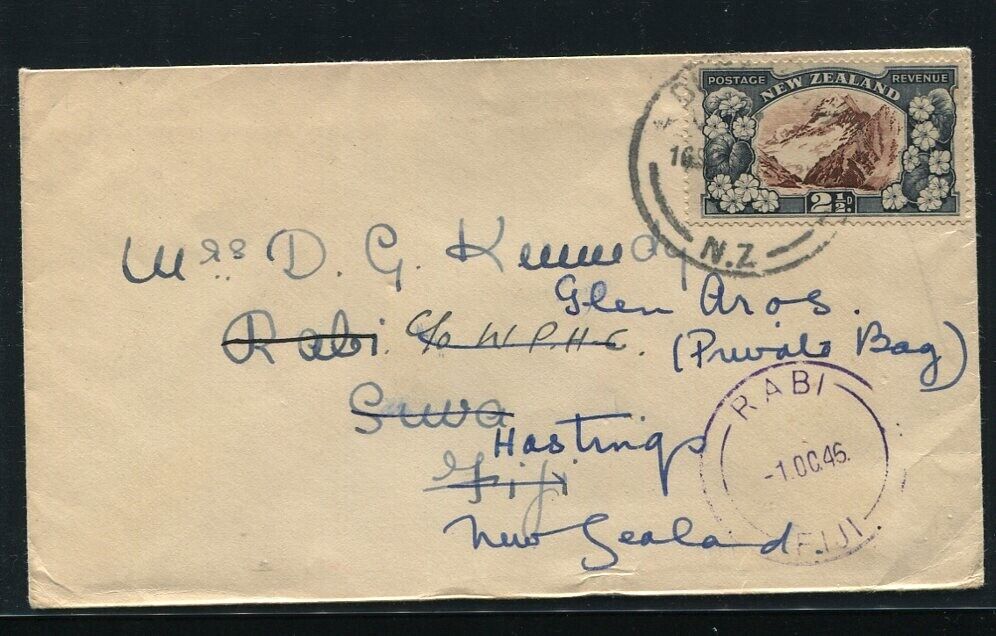 POSTAGE NEW ZEALAND REVENUE
2½D
16
N.Z
Mrs D. G. Kennedy
Glen Aros.
Rabi. C/o W.P.H.C. (Private Bag)
Suva
Hastings
Fiji
New Zealand.
RABI
-1.OC.46.
FIJI